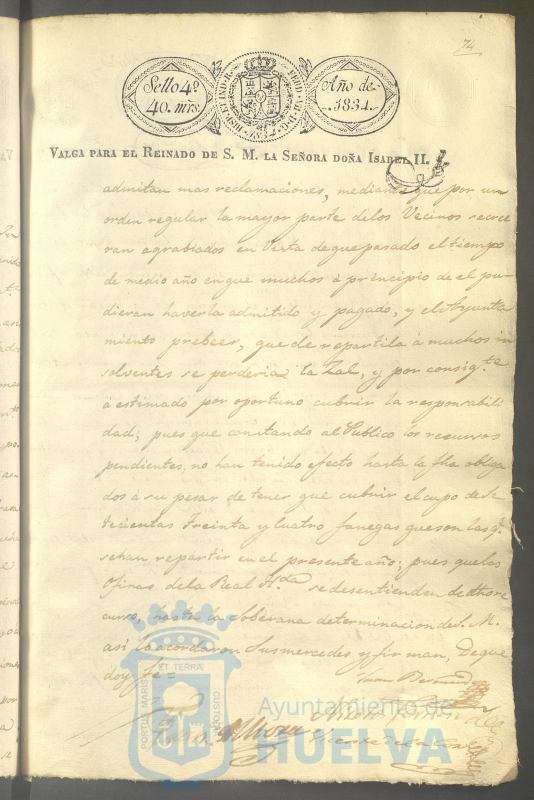 74
Sello 4º
40. mrs.
HISPANIAR. R. FERD. VII. D. G.
Año de
1834.
VALGA PARA EL REINADO DE S. M. LA SEÑORA DOÑA ISABEL II.
admitan mas reclamaciones, mediante que por un
orden regular la mayor parte delos Vecinos secree
ran agrabiados en Vista de que pasado el tiempo
de medio año en que muchos á principio de el pu-
dieran haverla admitido y pagado, y el Ayunta
miento prebeer, que de repartila á muchos in
solventes se perderia la Sal, y por consigte
á estimado por oportuno cubrir la responsabili
dad; pues que constando al Publico los recursos
pendientes, no han tenido efecto hasta la fha obliga
dos á su pesar de tener que cubrir el cupo de Se
tecientas treinta y cuatro fanegas queson las q.
sehan repartir en el presente año; pues quelas
Ofinas dela Real Hda sedesentienden de dho re
curso, hasta la Soberana determinacion de S. M.
asi lo acordaron Susmercedes y firman, Deque
doy fe=
PORTUS MARIS ET TERRÆ CUSTODIA
Ayuntamiento de
HUELVA